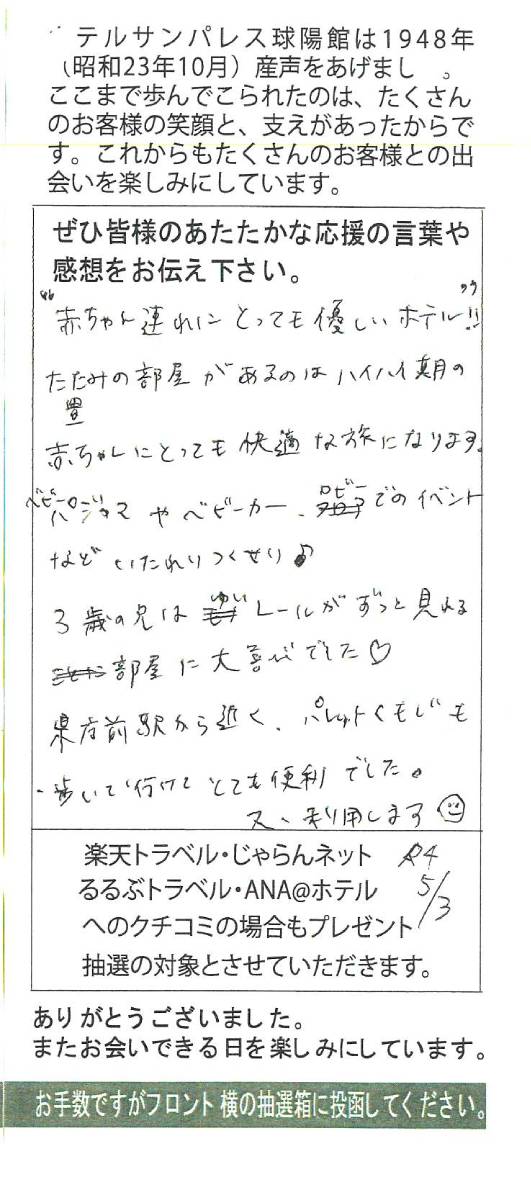 テルサンパレス球陽館は1948年
（昭和23年10月）産声をあげまし 。
ここまで歩んでこられたのは、たくさん
のお客様の笑顔と、支えがあったからで
す。これからもたくさんのお客様との出
会いを楽しみにしています。
ぜひ皆様のあたたかな応援の言葉や
感想をお伝え下さい。
"赤ちゃん連れにとっても優しいホテル!!"
たたみの部屋があるのはハイハイ期の
畳
赤ちゃんにとっても快適な旅になります。
ベビーバジャマやベビーカー、ロビーでのイベント
などいたれりつくせり♪
3歳の兄はゆいレールがずっと見れる
部屋に大喜びでした♡
県庁前駅から近く、パレットくもじも
歩いて行けてとても便利でした。
又、利用します☺
楽天トラベル・じゃらんネット
R4
るるぶトラベル・ANA@ホテル
5/3
へのクチコミの場合もプレゼント
抽選の対象とさせていただきます。
ありがとうございました。
またお会いできる日を楽しみにしています。
お手数ですがフロント横の抽選箱に投函してください。